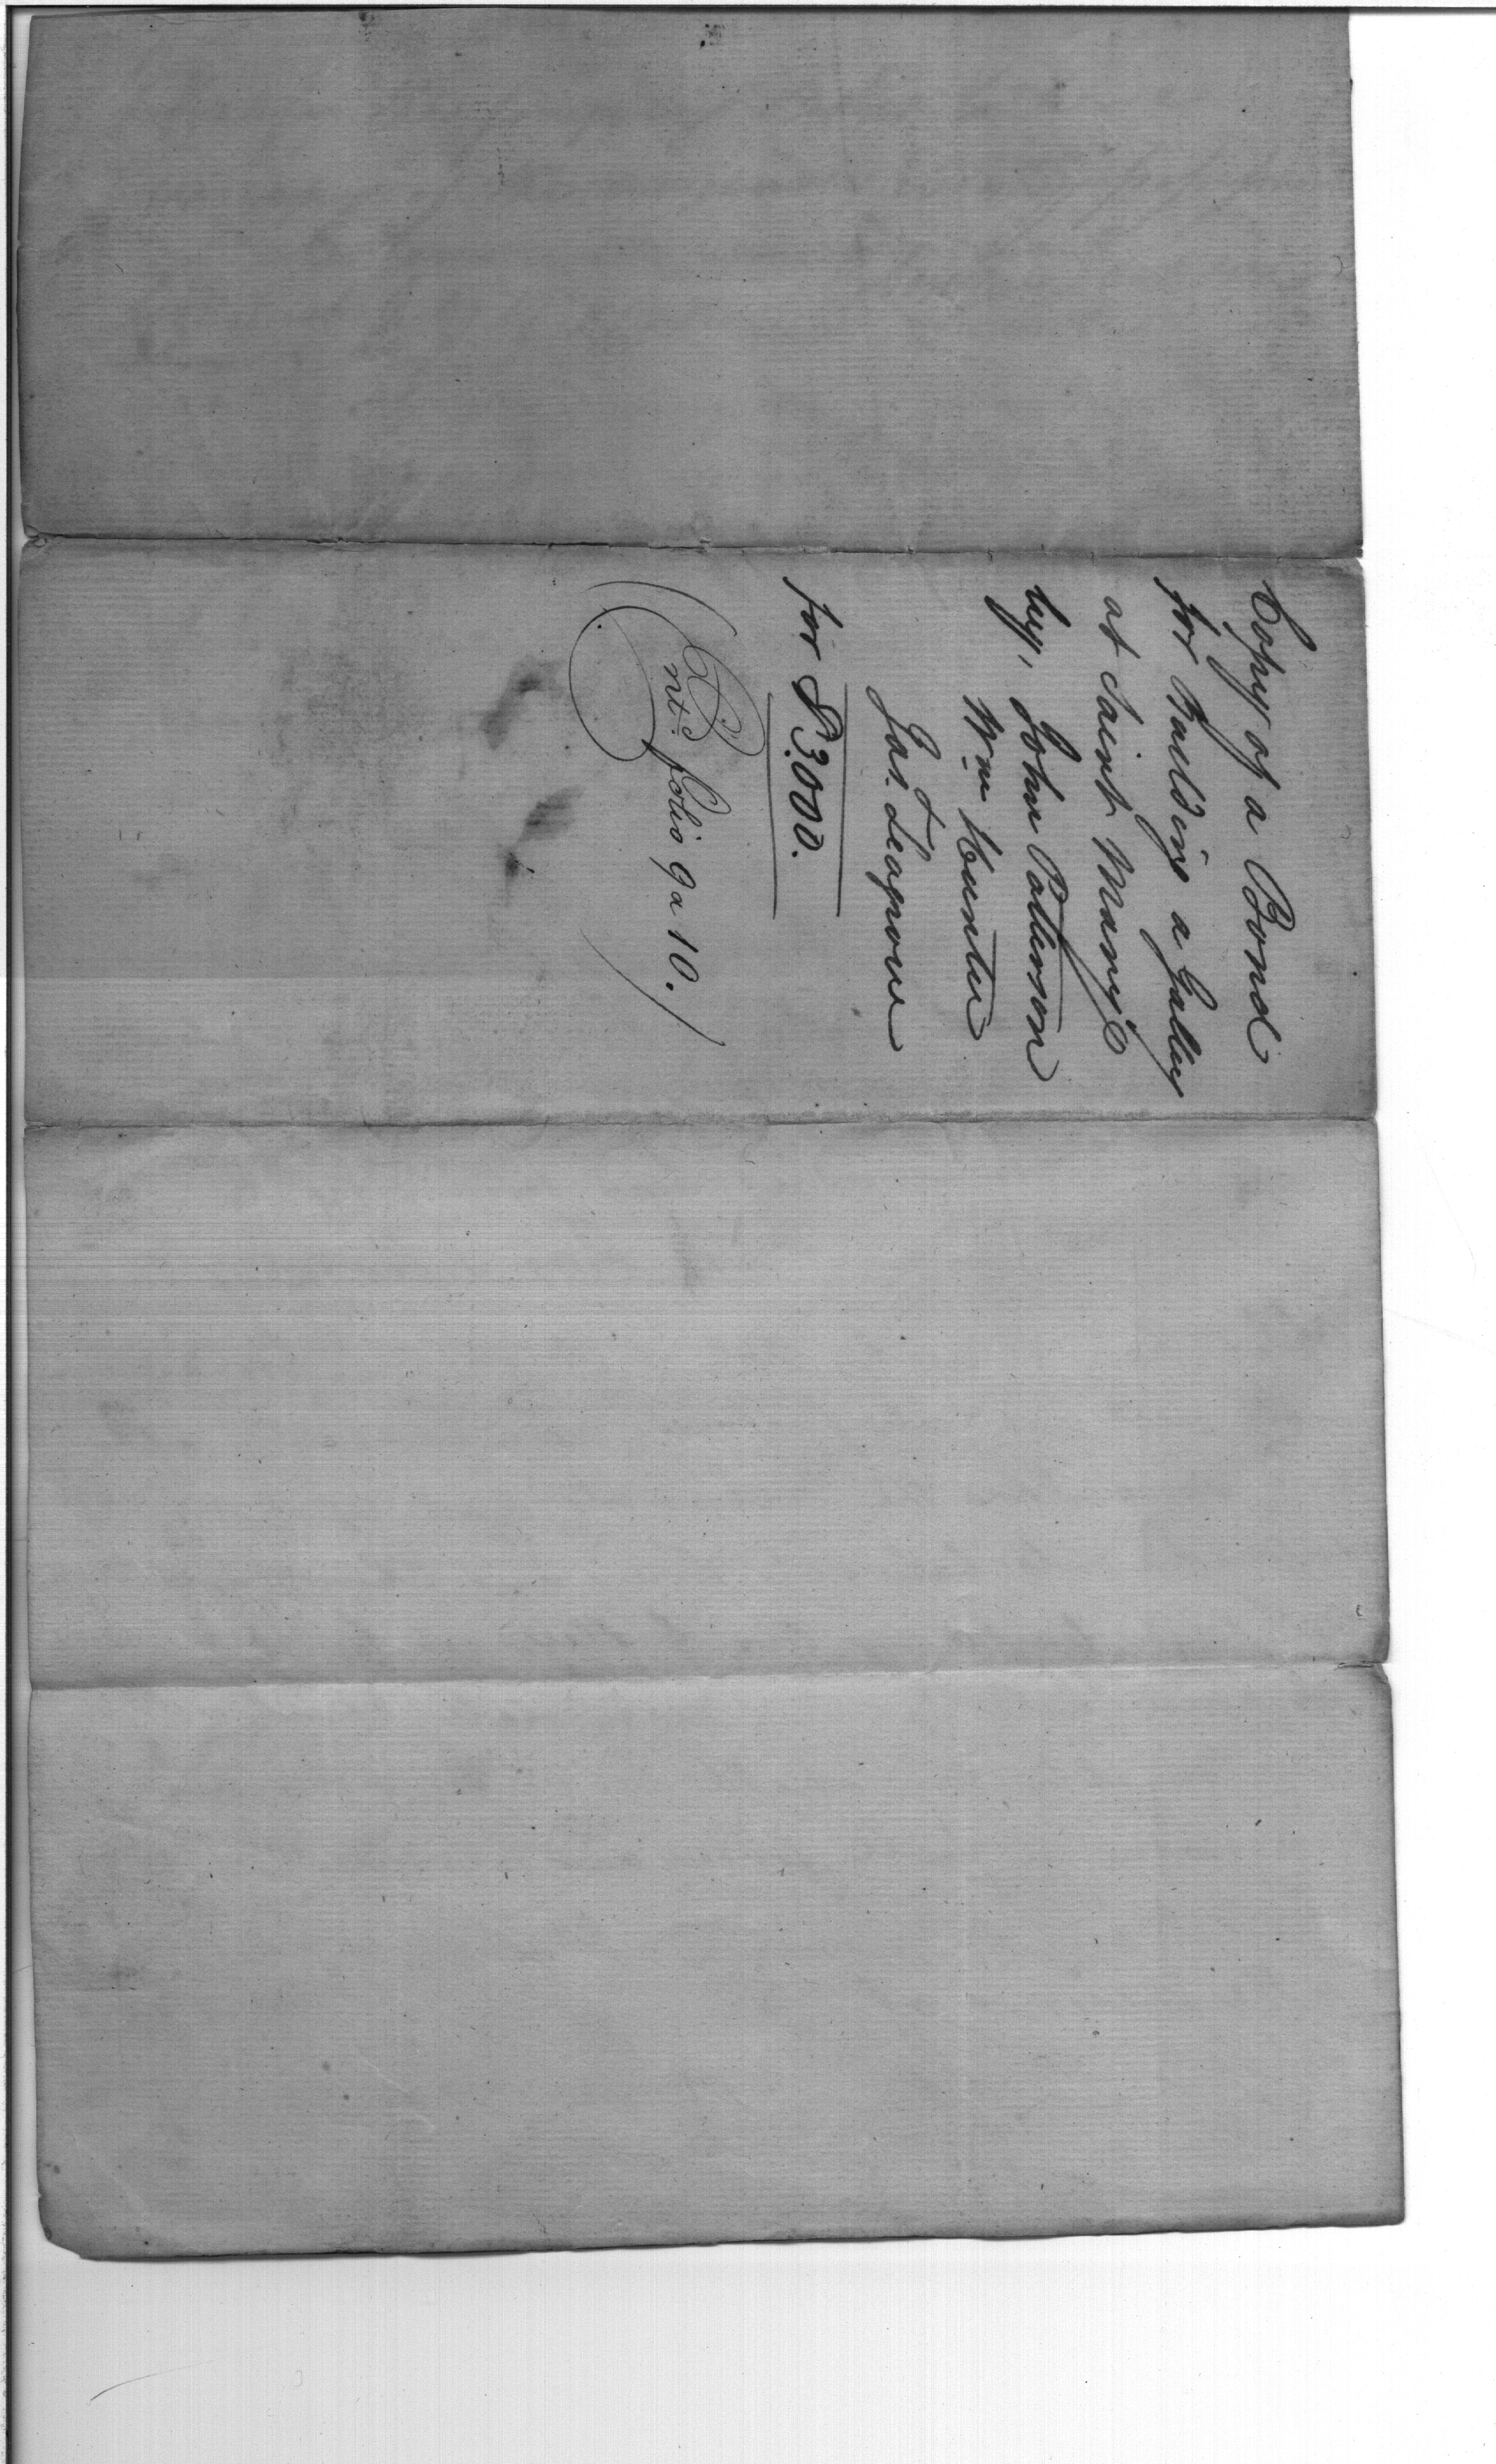 Copy of a Bond
for Building a Galley
at Saint Mary's
by, John Patterson
Wm Hunter
Jas. Seagrove
for $ 3000.
folio 9 a 10.